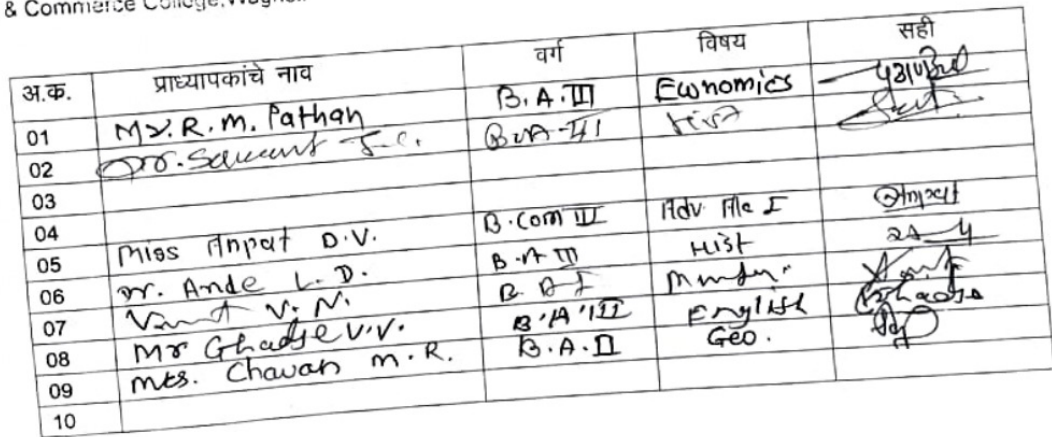 & Commerce College, Wagholi
अ.क्र. प्राध्यापकांचे नाव वर्ग विषय सही
01 Mr. R. M. Pathan B.A.III Economics
02 Dr. Sawant J.C. B.A-III Hist
03
04
05 Miss Anpat D.V. B.Com III Adv. A/c I
06 Dr. Ande L.D. B.A III Hist
07 V.N. B.A I
08 Mr Ghadse V.V. B.A.III English Ghadse
09 Mrs. Chavan M.R. B.A.II Geo.
10